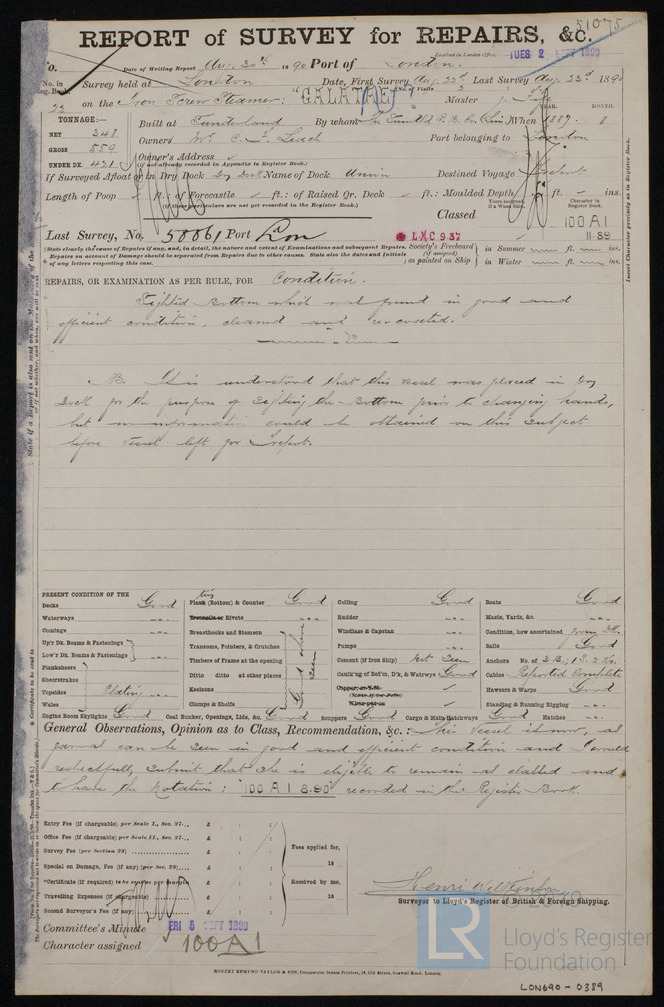 51075
REPORT of SURVEY for REPAIRS, &c.
TUES 2 SEPT 1890
No. Date of Writing Report Aug. 30th 1890 Port of London.
No. in Reg. Book Survey held at London Date, First Survey Aug. 22d Last Survey Aug. 23d 1890
on the Iron Screw Steamer: "GALATAE" Master
TONNAGE:— YEAR. MONTH.
NET 348 Built at Sunderland By whom When 1887. 8
GROSS 559 Owners Mr C. Leach Port belonging to London
UNDER DK. 421 Owner's Address
(if not already recorded in Appendix to Register Book.)
If Surveyed Afloat or in Dry Dock Dry Dock Name of Dock Union Destined Voyage
Length of Poop ft. of Forecastle ft.: of Raised Qr. Deck ft.: Moulded Depth ft. ins.
(if these particulars are not yet recorded in the Register Book.)
Classed
Character in Register Book.
100 A1
11.89
Last Survey, No. 58861 Port Lon
LMC 9 87
Society's Freeboard (if assigned) as painted on Ship in Summer ft. ins.
in Winter ft. ins.
State clearly the cause of Repairs if any, and, in detail, the nature and extent of Examinations and subsequent Repairs.
Repairs on account of Damage should be separated from Repairs due to other causes. State also the dates and Initials of any letters respecting this case.
REPAIRS, OR EXAMINATION AS PER RULE, FOR Condition.
Sighted Bottom which was found in good and
efficient condition, cleaned and recoated.
N.B. It is understood that this vessel was placed in Dry
Dock for the purpose of Sighting the Bottom prior to changing hands,
but no information could be obtained on this subject
before vessel left for
PRESENT CONDITION OF THE
Decks Good
Waterways
Comings
Up'r Dk. Beams & Fastenings
Low'r Dk. Beams & Fastenings
Planksheers
Sheerstrakes
Topsides Plating
Wales
Engine Room Skylights Good
Plank (Bottom) & Counter Good
Treenails or Rivets
Breasthooks and Stemson
Transoms, Pointers, & Crutches
Timbers of Frame at the opening
Ditto ditto at other places
Keelsons
Clamps & Shelfs
Good where seen
Coal Bunker, Openings, Lids, &c. Good
Ceiling Good
Rudder
Windlass & Capstan
Pumps
Cement (if Iron Ship) Not Seen
Caulk'ng of Bot'm, D'k, & Waterways Good
Scuppers Good Cargo & Main Hatchways Good Hatches
Boats Good
Masts, Yards, &c.
Condition, how ascertained from Dk.
Sails Good
Anchors No. of 3 B.; 1 S. 2 K.
Cables Reported Complete
Hawsers & Warps Good
Standing & Running Rigging
General Observations, Opinion as to Class, Recommendation, &c.: This vessel is now, as
far as can be seen in good and efficient condition and I would
respectfully submit that she is eligible to remain as classed and
to have the Notation: "100 A1 8.90" recorded in the Register Book.
Entry Fee (if chargeable) per Scale I., Sec. 27... £
Office Fee (if chargeable) per Scale II., Sec. 27... £
Survey Fee (per Section 28) £
Special on Damage, Fee (if any) (per Sec. 28) £
Certificate (if required) £
Travelling Expenses (if chargeable) £
Second Surveyor's Fee (if any) £
Fees applied for, 18
Received by me, 18
Surveyor to Lloyd's Register of British & Foreign Shipping.
Committee's Minute FRI 5 SEPT 1890
Character assigned 100 A1
LR
Lloyd's Register
Foundation
ROBERT EDMUND TAYLOR & SON, Commercial Steam Printers, 19, Old Street, Goswell Road, London.
LON690-0389